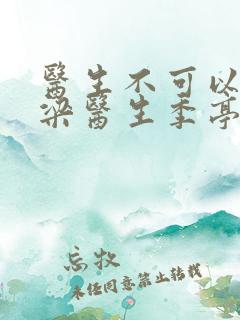 醫生不可以
梁醫生季亭
忘牧
未经同意禁止转载